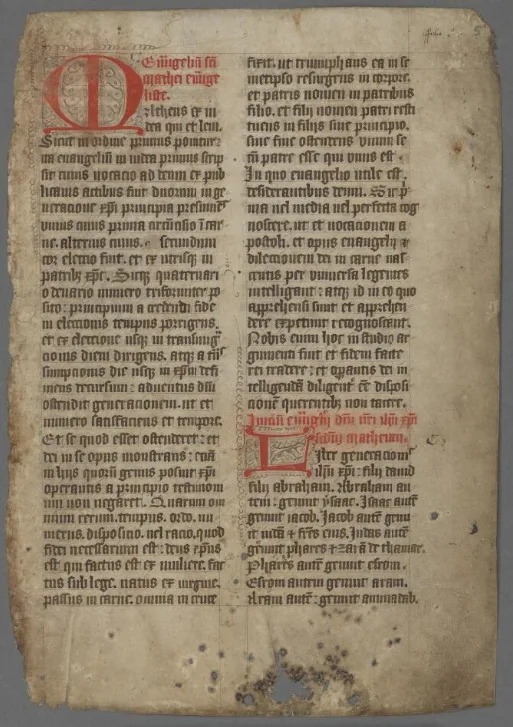 Ewangeliū scī
mathei ewāge
liste.
Matheus ex in
dea qui et leui.
Sicut in ordine primus ponitur:
ita euangeliū in iudea primus scrip
sit cuius uocacio ad deum ex pub
licanis actibus fuit duorum in ge
neracione xp̄i principia presumēs
unius cuius prima circūcisio ī car
ne. alterius cuius. secundum
cor electio fuit. et ex utrisque in
patribȝ xp̄c. Sicque quaternari
o denario numero triformiter po
sito: principium a credendi fide
in electionis tempus porrigens.
et ex electione usque in transmigͣ
cionis diem dirigens. atque a trāſ
migracionis die usque in xp̄m defi
niens decursum: aduentus dn̄i
ostendit generacionem. ut et
numero satisfaciens et tempore.
Et se quod esset ostenderet: et
dei in se opus monstrans: eciā
in hijs quorū genus posuit xp̄i
operantis a principio testimoni
um non negaret. Quarum om
nium rerum. tempus. ordo. nu
merus. disposicio. uel racio. quod
fidei necessarium est: deus xp̄us
est qui factus est ex muliere. fac
tus sub lege. natus ex uirgine.
passus in carne. omnia in cruce
fixit. ut triumphans ea in se
metipso resurgens in corpore.
et patris nomen in patribus
filio. et filij nomen patri resti
tuens in filijs sine principio.
sine fine ostendens unum se
cū patre esse qui unus est.
In quo euangelio utile est
desiderantibus deum. Sic pͥ
ma uel media uel perfecta cog
noscere. ut et uocacionem a
postoli. et opus euangelij et
dilectionem dei in carne nas
centis per uniuersa legentes
intelligant: atque id in eo quo
apprehensi sunt et apprehen
dere expetunt recognoscant.
Nobis enim hoc in studio ar
gumenti fuit et fidem facte
rei tradere: et operantis dei in
telligendā diligenter esse disposi
cionē querentibȝ non tacere.
scdm̄ matheum.
Liber generacionis
ihū xp̄i: filij dauid
filij abraham. Abraham au
tem: genuit ysaac. Isaac autē
genuit iacob. Jacob autē genu
it iudā et fr̄es eius. Iudas autē
genuit phares et zarā de thamar.
Phares autē genuit esrom.
Esrom autem genuit aram.
Aram autē: genuit aminadab.